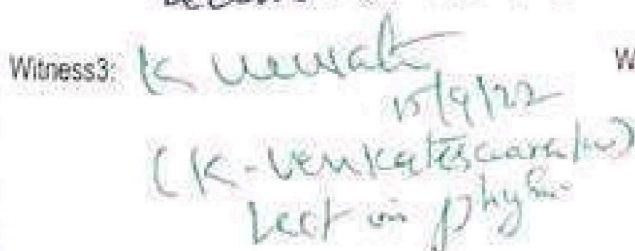 Witness3: K Venkat W
15/9/22
(K-Venkateswaralu)
Lect in Physi